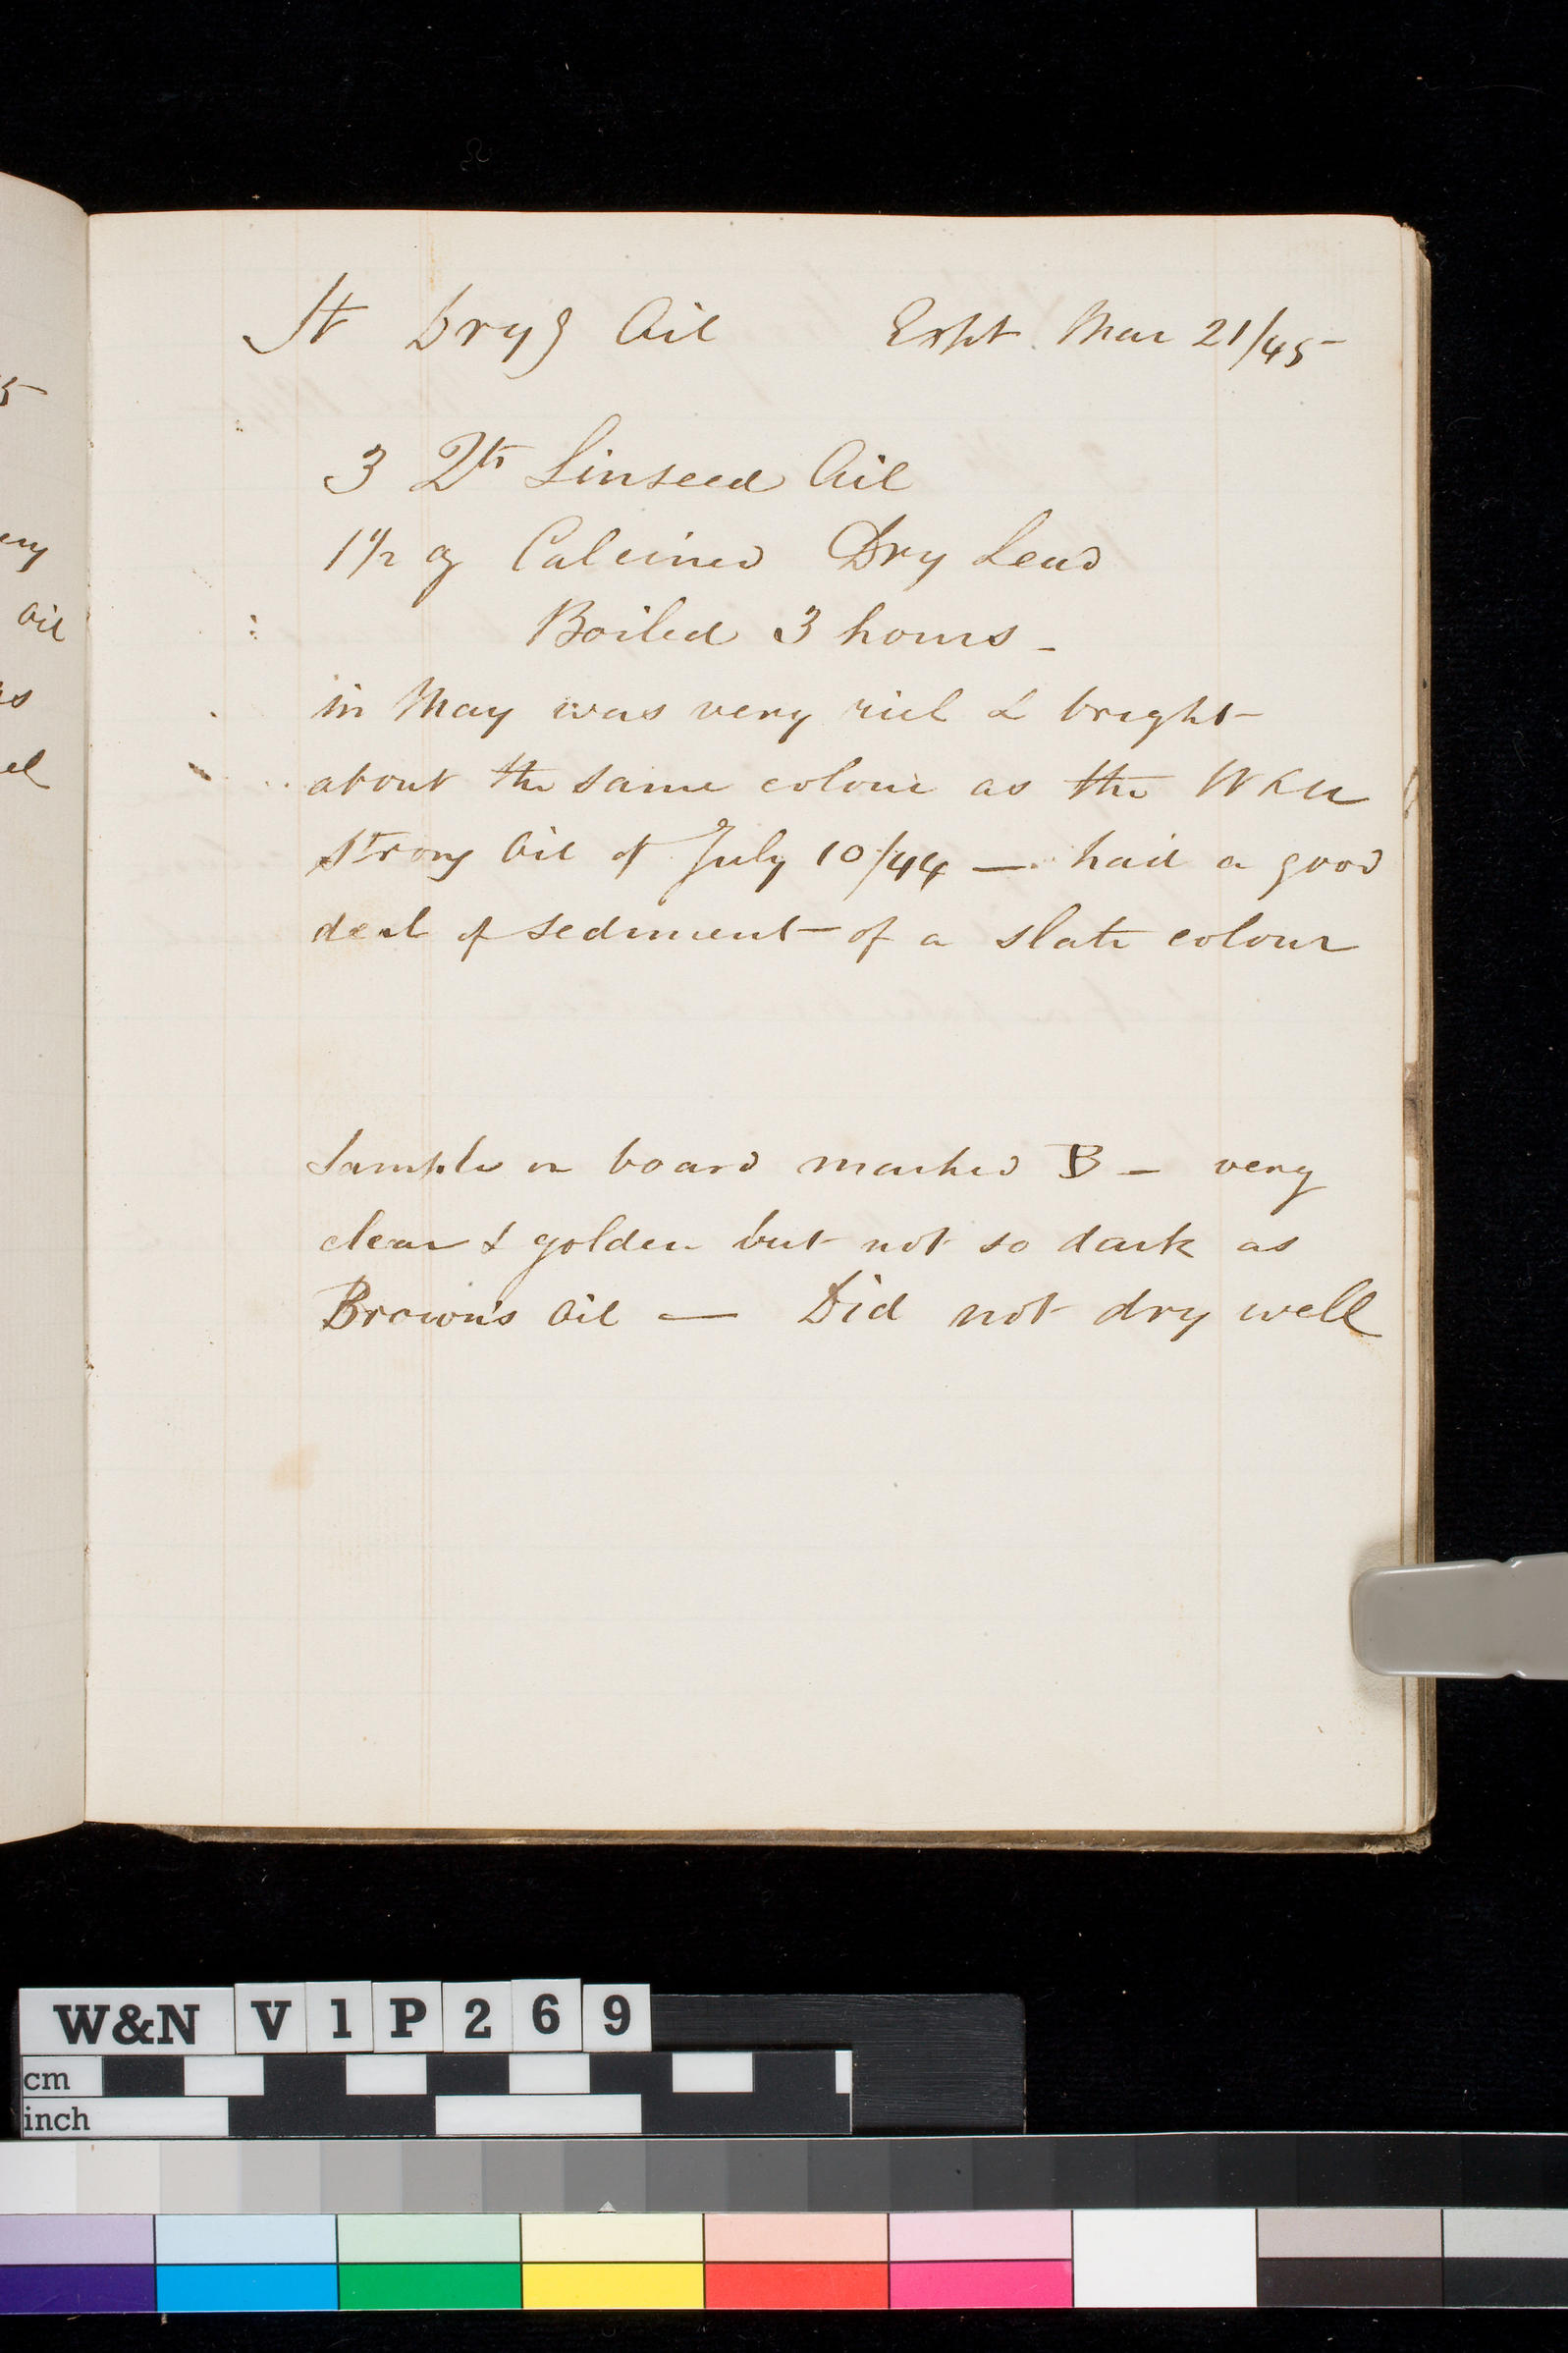 5
St Dryg Oil Expt Mar 21/45
ery
3 Qts Linseed Oil
Oil
1 1/2 oz Calcined Dry Lead
Boiled 3 hours -
in May was very rich & bright
about the same colour as the
strong Oil of July 10/44 — had a good
deal of sediment of a slate colour
Sample on board marked B - very
clear & golden but not so dark as
Brown's Oil — Did not dry well
W&N V1P269
cm
inch